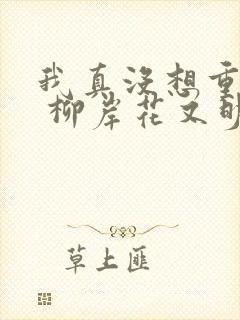 我真没想重
柳岸花又明
草上匪